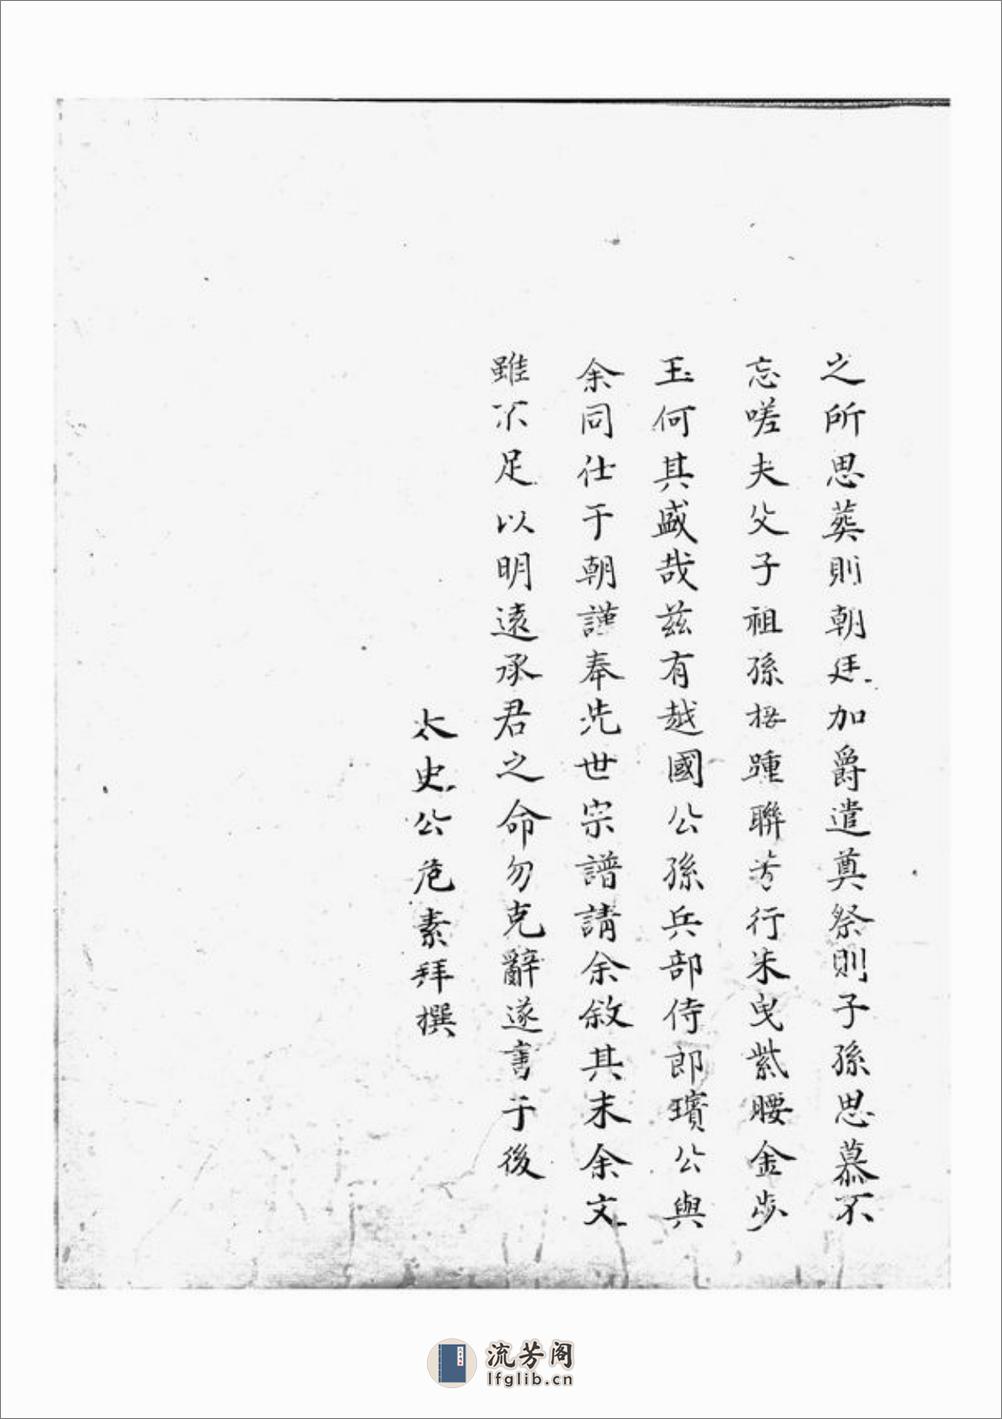 之所思葬則朝廷加爵遣奠祭則子孫思慕不
忘嗟夫父子祖孫接踵聯芳行朱曳紫腰金步
玉何其盛哉茲有越國公孫兵部侍郎璸公與
余同仕于朝謹奉先世宗譜請余敘其末余文
雖不足以明遠承君之命勿克辭遂書于後
太史公危素拜撰
流芳阁
lfglib.cn